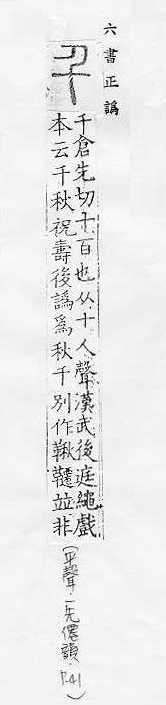 六書正譌
千
千倉先切十百也从十人聲漢武後庭繩戲
本云千秋祝壽後譌爲秋千別作鞦韆並非
(平聲．一先僊韻．P.41)